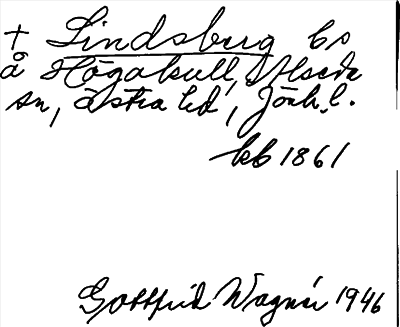 + Lindsburg bs
å Högakull, Alseda
sn, Östra hd, Jönk. l.
kb 1861
Gottfrid Wagnér 1946